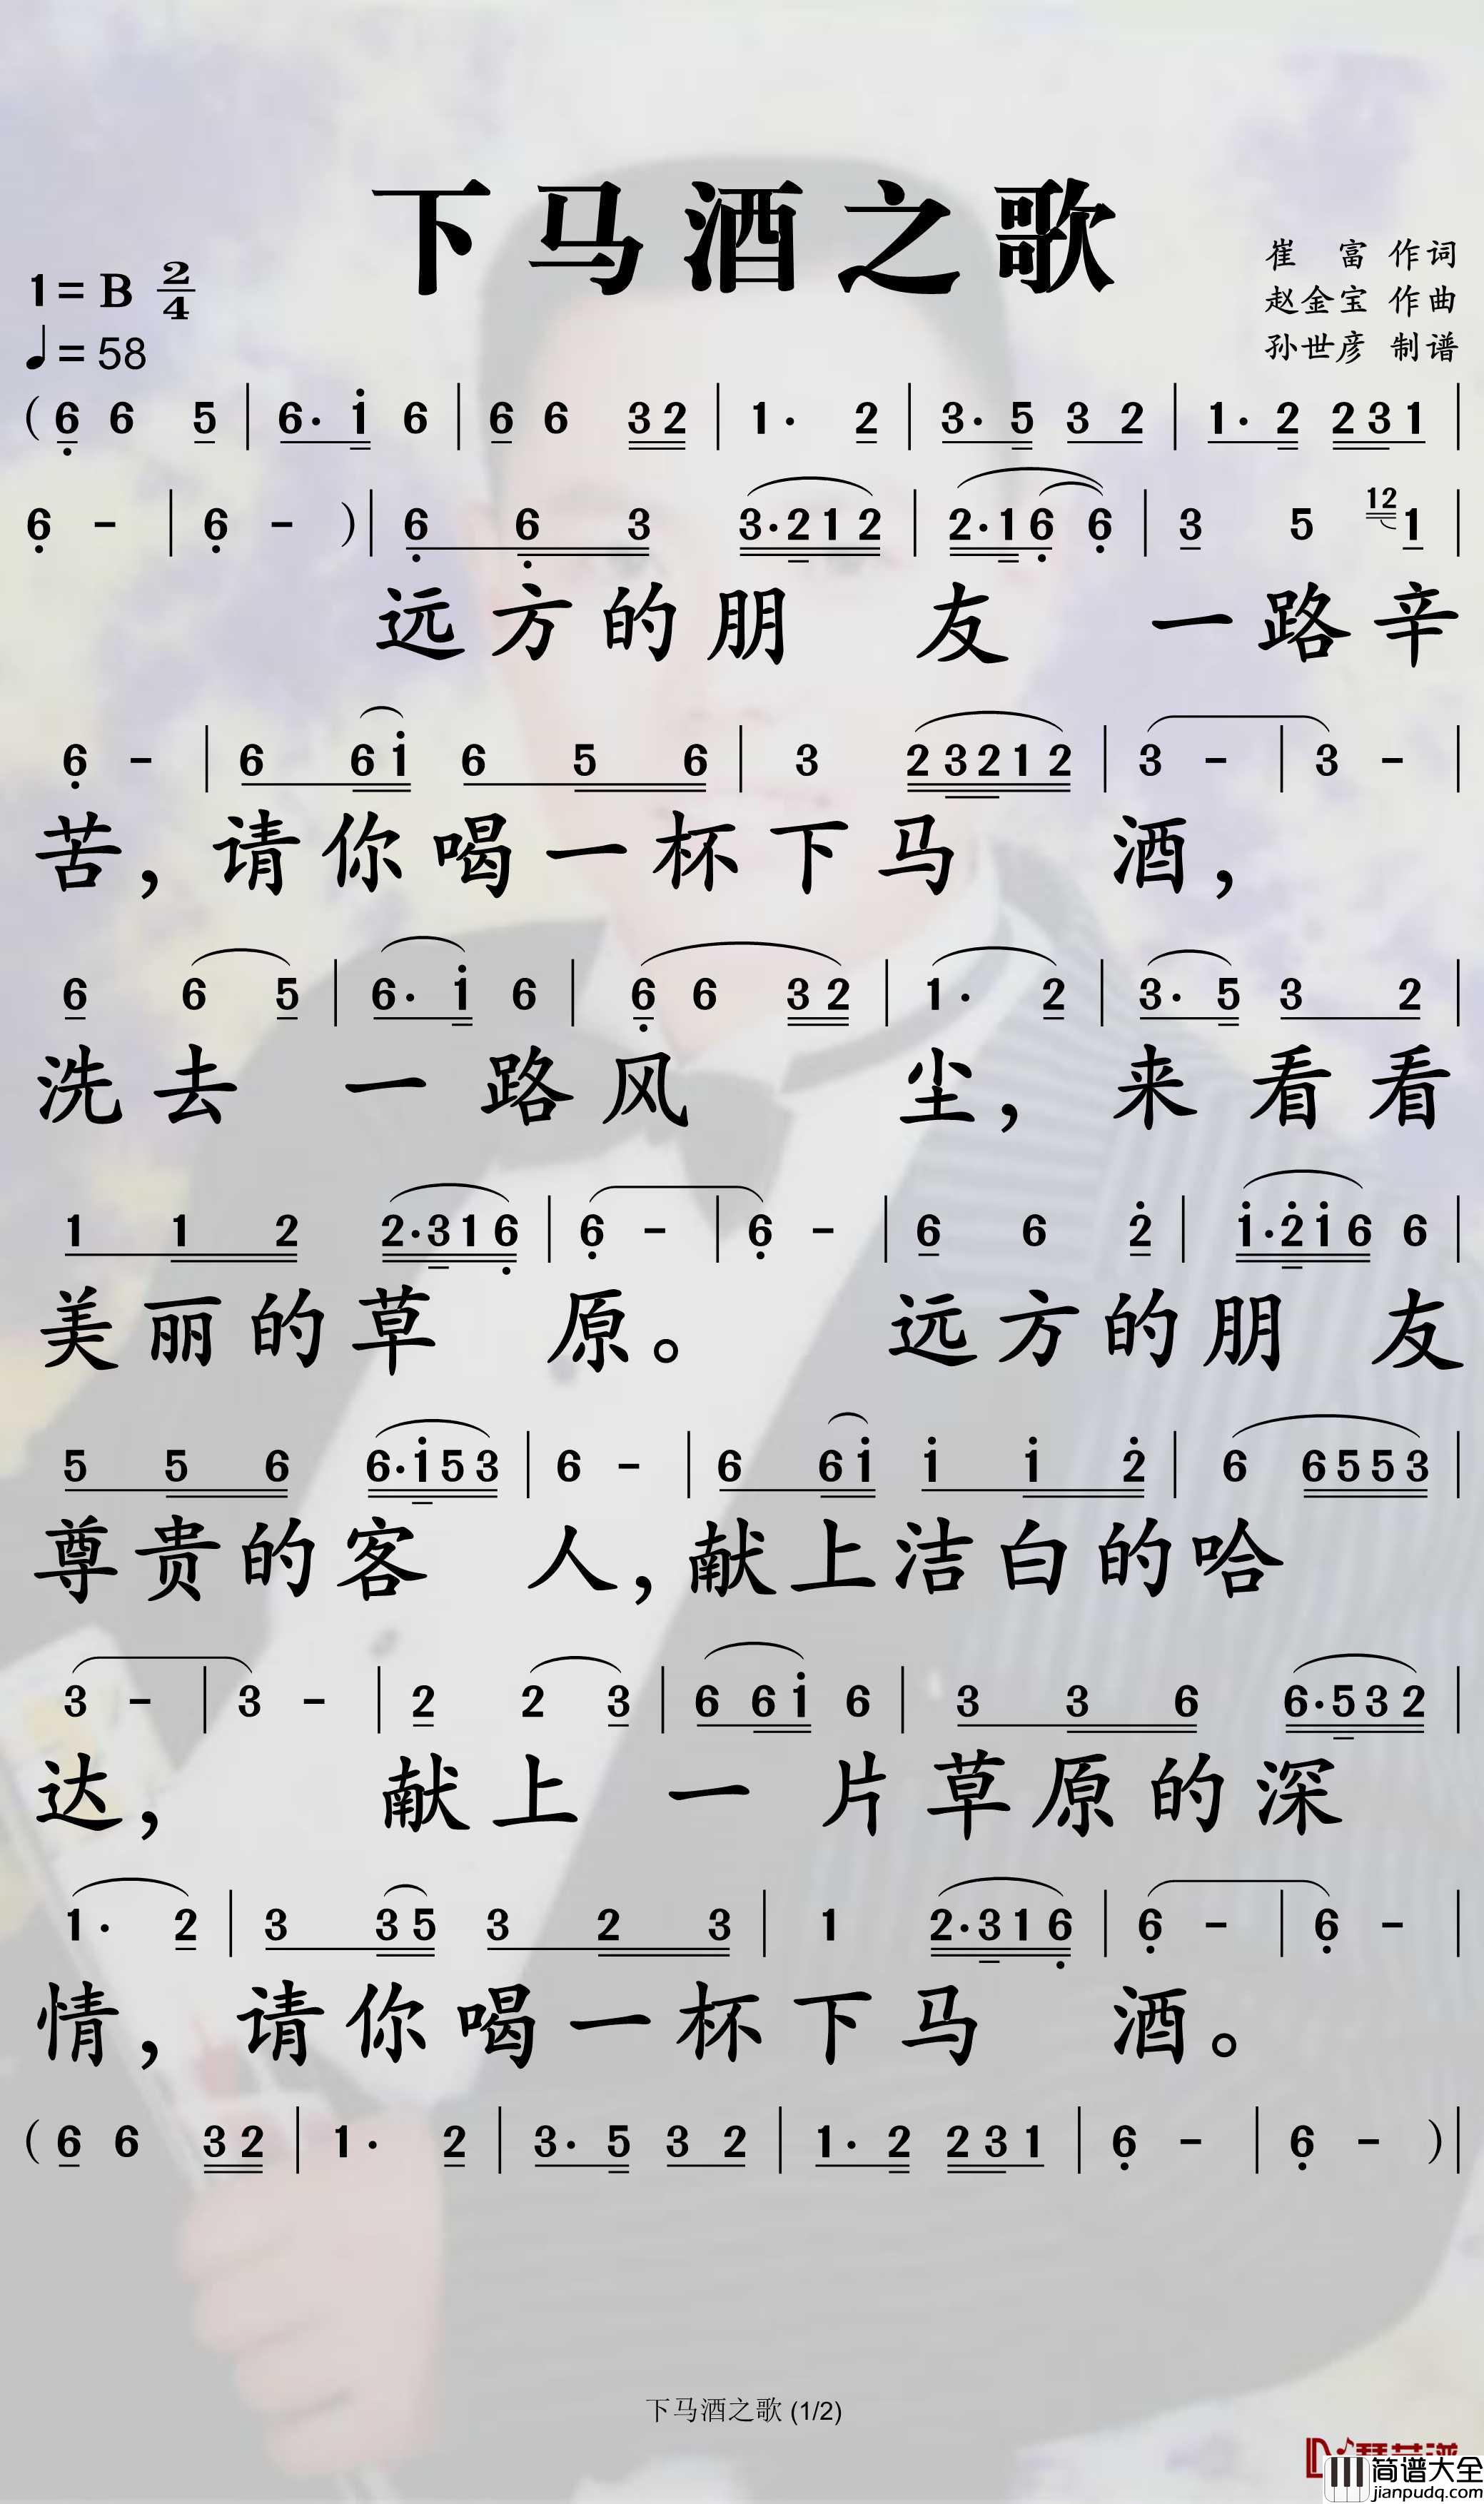 下马酒之歌
1=B 2/4
♩=58
崔 富 作词
赵金宝 作曲
孙世彦 制谱
(6 6 5 | 6· i 6 | 6 6 3 2 | 1· 2 | 3· 5 3 2 | 1· 2 2 3 1 |
6 - | 6 - )| 6 6 3 3·2 1 2 | 2·1 6 6 | 3 5 12 1 |
远方的朋 友 一路辛
6 - | 6 6 i 6 5 6 | 3 2 3 2 1 2 | 3 - | 3 - |
苦,请你喝一杯下马 酒,
6 6 5 | 6· i 6 | 6 6 3 2 | 1· 2 | 3· 5 3 2 |
洗去 一路风 尘,来看看
1 1 2 2·3 1 6 | 6 - | 6 - | 6 6 2 | i·2 i 6 6 |
美丽的草 原。 远方的朋 友
5 5 6 6·i 5 3 | 6 - | 6 6 i i i 2 | 6 6 5 5 3 |
尊贵的客 人,献上洁白的哈
3 - | 3 - | 2 2 3 | 6 6 i 6 | 3 3 6 6·5 3 2 |
达, 献上 一 片草原的深
1· 2 | 3 3 5 3 2 3 | 1 2·3 1 6 | 6 - | 6 - |
情,请你喝一杯下马 酒。
(6 6 3 2 | 1· 2 | 3· 5 3 2 | 1· 2 2 3 1 | 6 - | 6 - )|
下马酒之歌 (1/2)
简谱大全
jianpudq.com